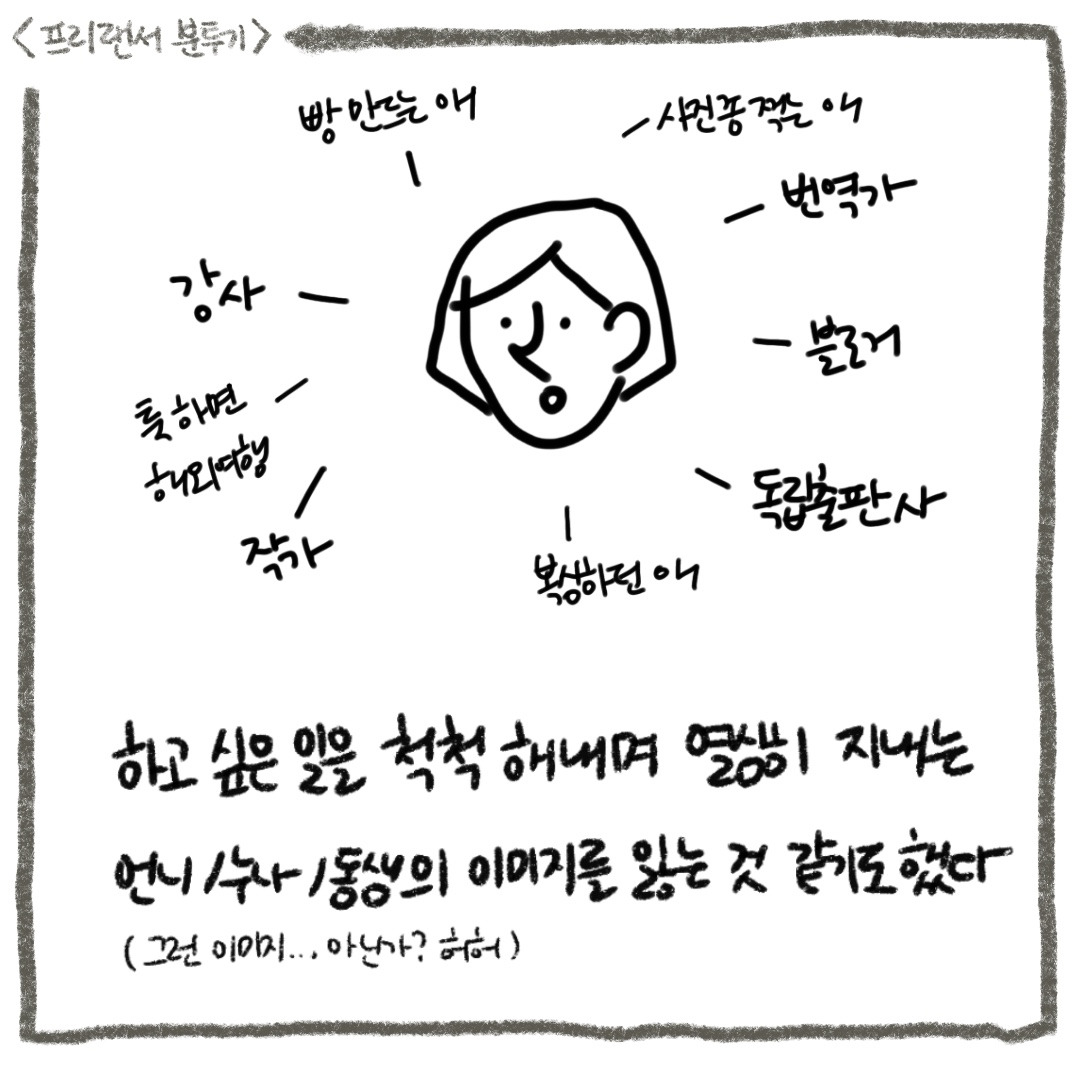 <프리랜서 분투기>
빵 만드는 애
사진좀 찍는 애
번역가
강사
블로거
툭하면
해외여행
독립출판사
작가
복싱하던 애
하고 싶은 일을 척척 해내며 열심히 지내는
언니/누나/동생의 이미지를 잃는 것 같기도 했다
(그런 이미지... 아닌가? 허허)